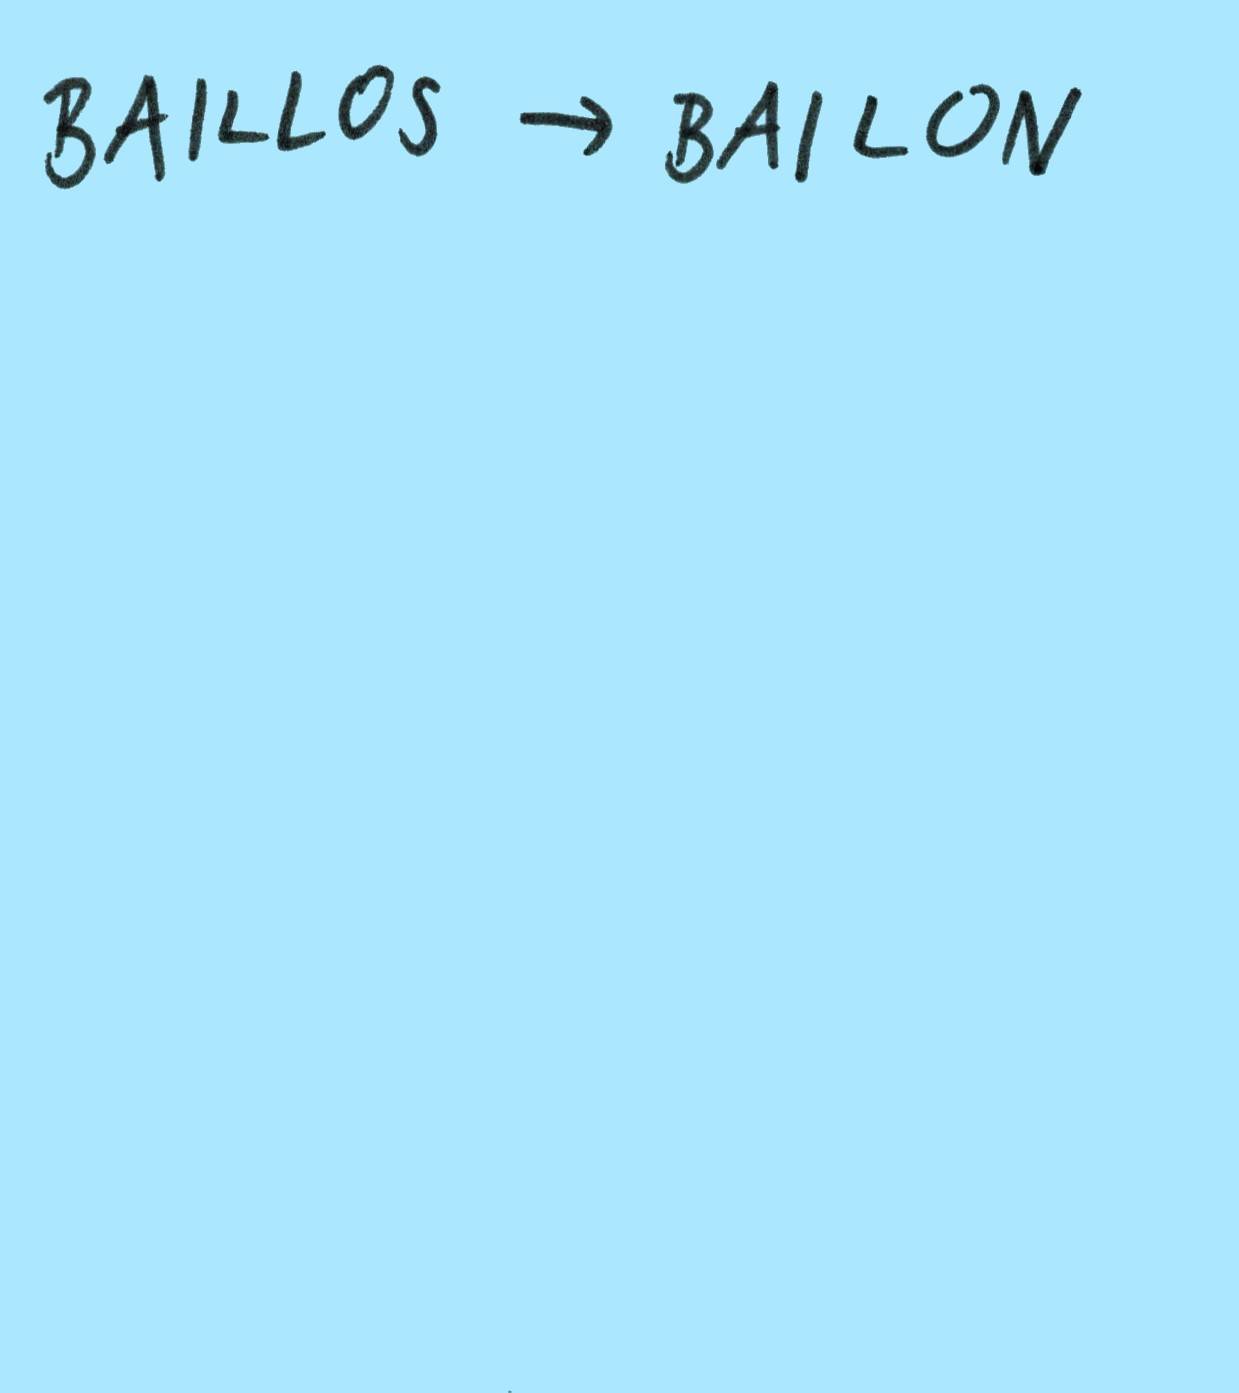 BAILLOS → BAILON